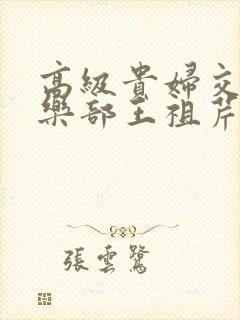 高級貴婦交
樂部王祖芹
張雲鷺